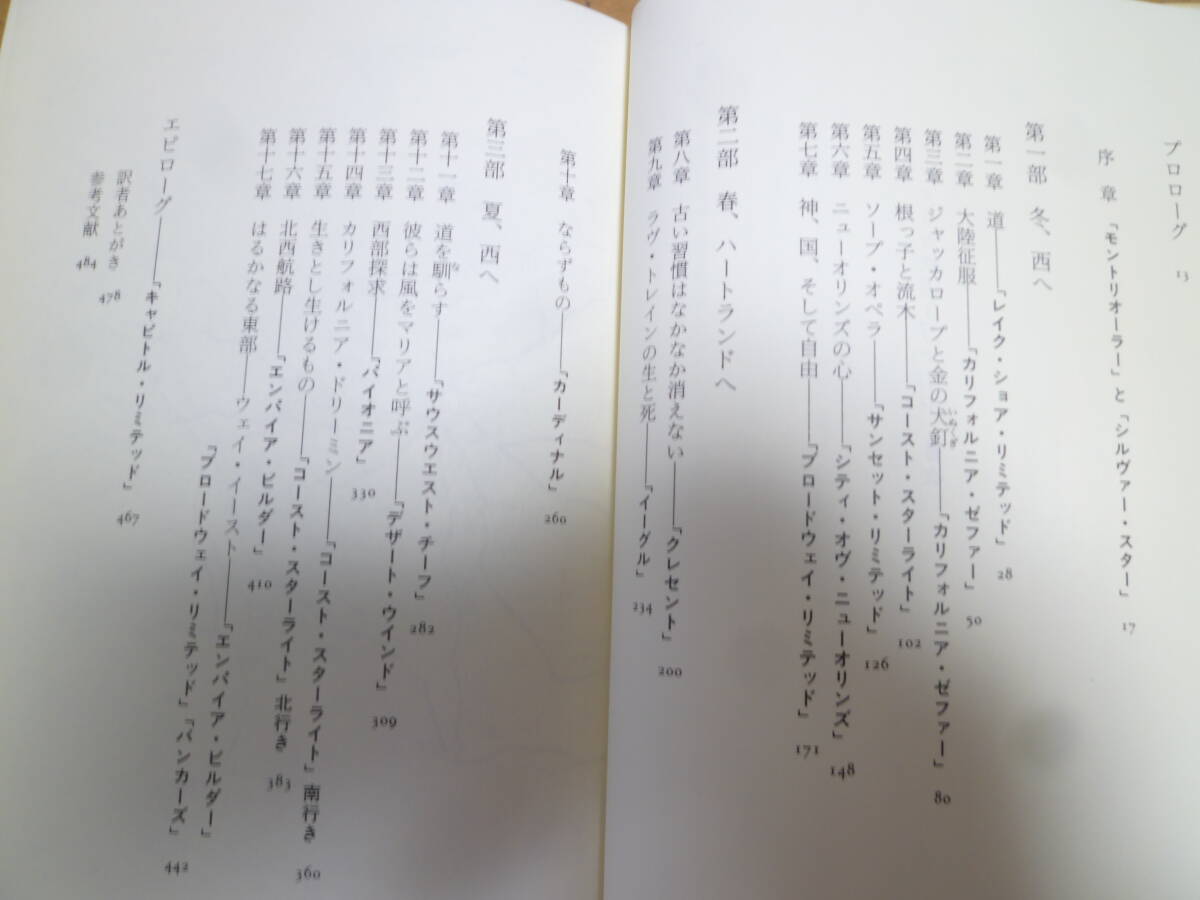 プロローグ 13
序章 「モントリオーラー」と「シルヴァー・スター」 17
第一部 冬、西へ
第一章 道――「レイク・ショア・リミテッド」 28
第二章 大陸征服――「カリフォルニア・ゼファー」 50
第三章 ジャッカロープと金の犬釘いぬくぎ――「カリフォルニア・ゼファー」 80
第四章 根っ子と流木――「コースト・スターライト」 102
第五章 ソープ・オペラ――「サンセット・リミテッド」 126
第六章 ニューオリンズの心――「シティ・オヴ・ニューオリンズ」 148
第七章 神、国、そして自由――「ブロードウェイ・リミテッド」 171
第二部 春、ハートランドへ
第八章 古い習慣はなかなか消えない――「クレセント」 200
第九章 ラヴ・トレインの生と死――「イーグル」 234
第十章 ならずもの――「カーディナル」 260
第三部 夏、西へ
第十一章 道を馴なら​す――「サウスウエスト・チーフ」 282
第十二章 彼らは風をマリアと呼ぶ――「デザート・ウインド」 309
第十三章 西部探求――「パイオニア」 330
第十四章 カリフォルニア・ドリーミン――「コースト・スターライト」南行き 360
第十五章 生きとし生けるもの――「コースト・スターライト」北行き 383
第十六章 北西航路――「エンパイア・ビルダー」 410
第十七章 はるかなる東部――ウェイ・イースト――「エンパイア・ビルダー」
「ブロードウェイ・リミテッド」「バンカーズ」 442
エピローグ――「キャピトル・リミテッド」 467
訳者あとがき 478
参考文献 484